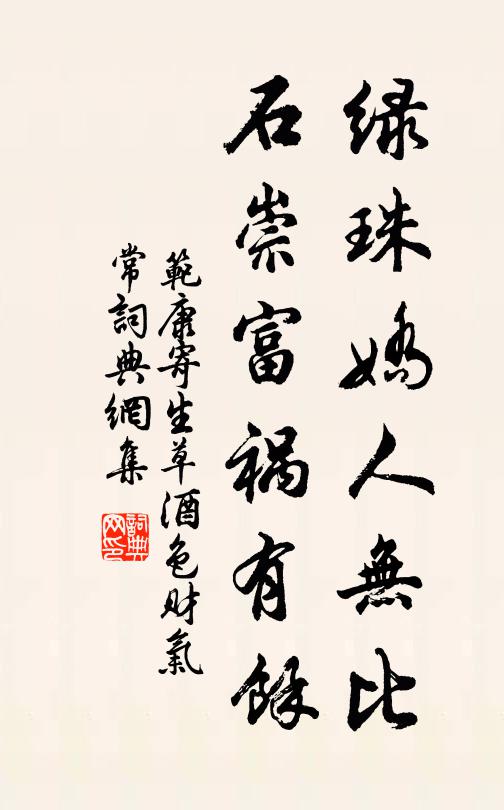 绿珠娇人無比
石崇富祸有餘
範康寄生草酒色财氣
常詞典網集
詞典
网印